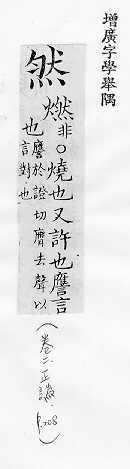 增廣字學舉隅
然
燃非○燒也又許也譍言
也譍於證切膺去聲以
言對也
(卷二.正譌. p.208)